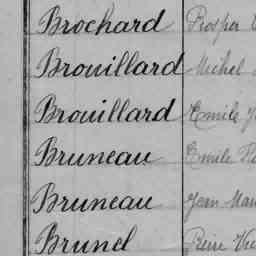 Brochard Prosper
Brouillard Michel
Brouillard Emile
Bruneau Emile
Bruneau Jean
Brunel Pierre